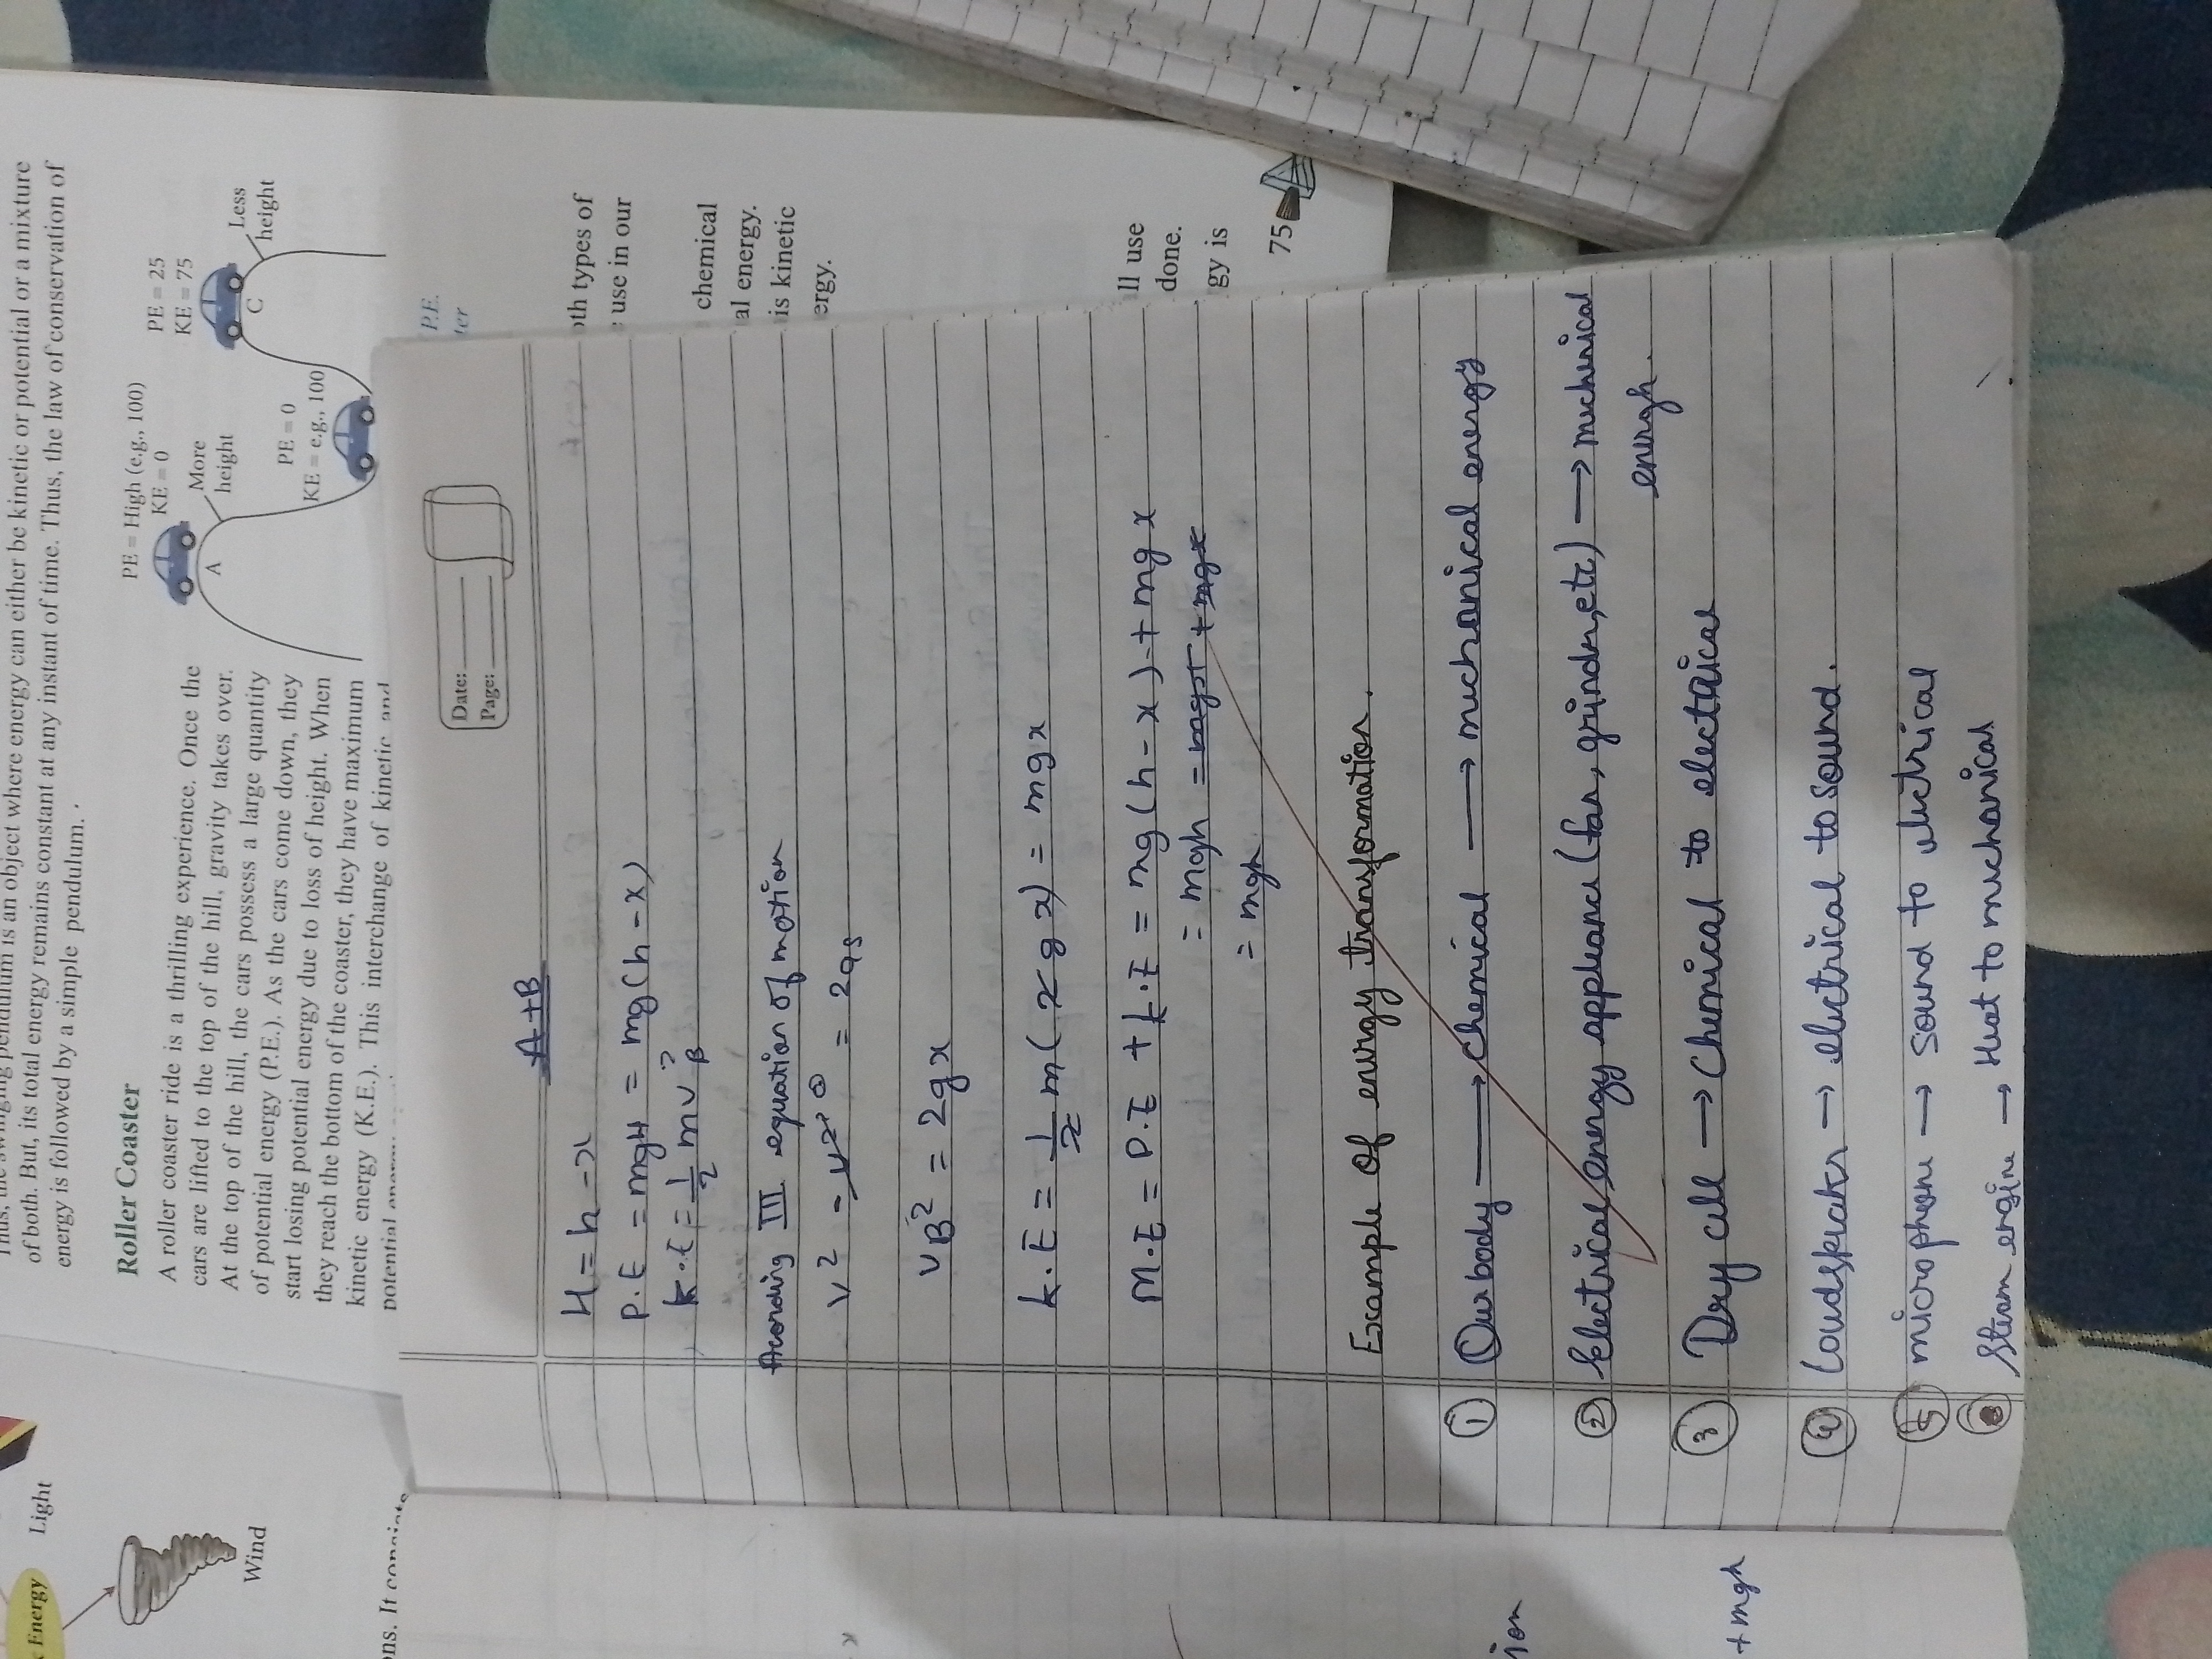 Energy
Light
Wind
ons. It consists
Thus, the swinging pendulum is an object where energy can either be kinetic or potential or a mixture
of both. But, its total energy remains constant at any instant of time. Thus, the law of conservation of
energy is followed by a simple pendulum.
Roller Coaster
A roller coaster ride is a thrilling experience. Once the
cars are lifted to the top of the hill, gravity takes over.
At the top of the hill, the cars possess a large quantity
of potential energy (P.E.). As the cars come down, they
start losing potential energy due to loss of height. When
they reach the bottom of the coaster, they have maximum
kinetic energy (K.E.). This interchange of kinetic and
potential energy
PE = High (e.g., 100)
KE = 0
A
More
height
PE = 25
KE = 75
C
Less
height
PE = 0
KE = e.g., 100
P.E.
ter
oth types of
use in our
chemical
al energy.
is kinetic
ergy.
ll use
done.
gy is
75
Date:
Page:
A+B
H = h - x
P.E = mgH = mg(h - x)
K.E = 1/2 mv²B
Acording III equation of motion
v² - u² 0 = 2as
vB² = 2gx
K.E = 1/2 m(2gx) = mgx
M.E = P.E + K.E = mg(h - x) + mgx
= mgh = mgx + mgx
= mgh
Example Of energy transformation.
① Our body → chemical → mechanical energy
② Electrical energy appliance (fan, grinder, etc) → mechenical
energh.
③ Dry cell → Chemical to electrical
④ Loudspeaker → electrical to sound.
⑤ microphone → sound to electrical
Steam engine → Heat to mechanical
ion
+ mgh